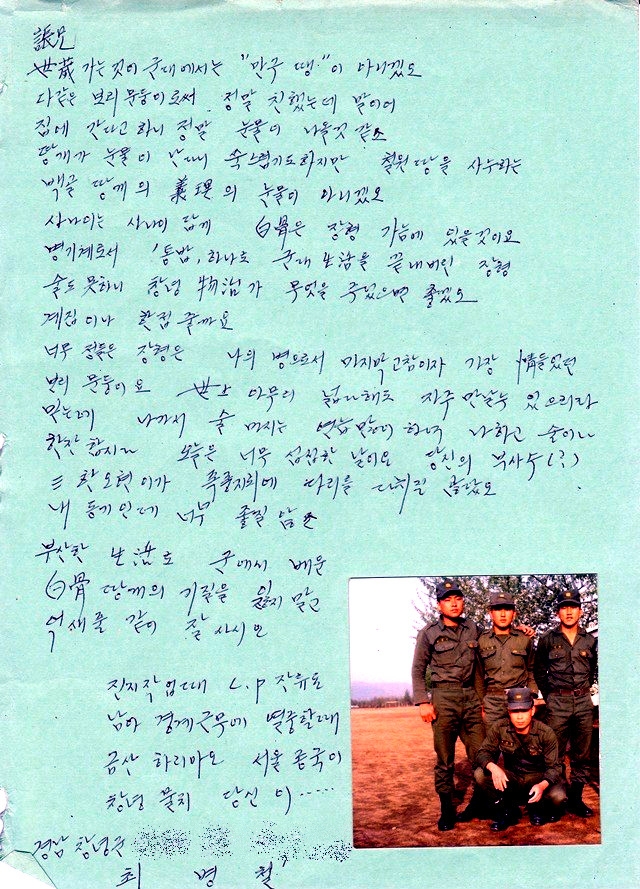 張兄
世歲 가는것이 군대에서는 "만구 땡."이 아니겠오
다같은 보리문둥이로써 정말 친했는데 말이여
집에 간다고 하니 정말 눈물이 나올것 같소
땅개가 눈물이 난다니 쑥스럽기도하지만 철원땅을 사수하는
백골 땅개의 義理의 눈물이 아니겠오
사나이는 사나이 답게 白骨은 장형 가슴에 있을것이요
병기체로서 '통밥, 하나로 군대 生活을 끝내버린 장형
술도 못하니 창녕 物治가 무엇을 주었으면 좋겠오
계집이나 한점 줄까요
너무 정들은 장형은 나의 병으로서 마지막고참이자 가장 情들었던
보리 문둥이요 世上 아무리 넓다해도 자주 만날수 있으리라
믿는데 나가서 술 마시는 연습많이 하여 나하고 술이나
한잔 합시다 오늘은 너무 섭섭한 날이요 당신의 부사수(?)
오현이가 족공지뢰에 다리를 다치질 않았오
내 동기인데 너무 좋질 않소
부산한 生活로 군에서 배운
白骨 땅개의 기질을 잃지 말고
억새풀 같이 잘 사시오
진지작업때 L.P 잔류로
남아 경계근무에 열중할때
금산 하리마오 서울 종국이
창녕 물치 당신 이.....
경남 창녕군
최 병 철